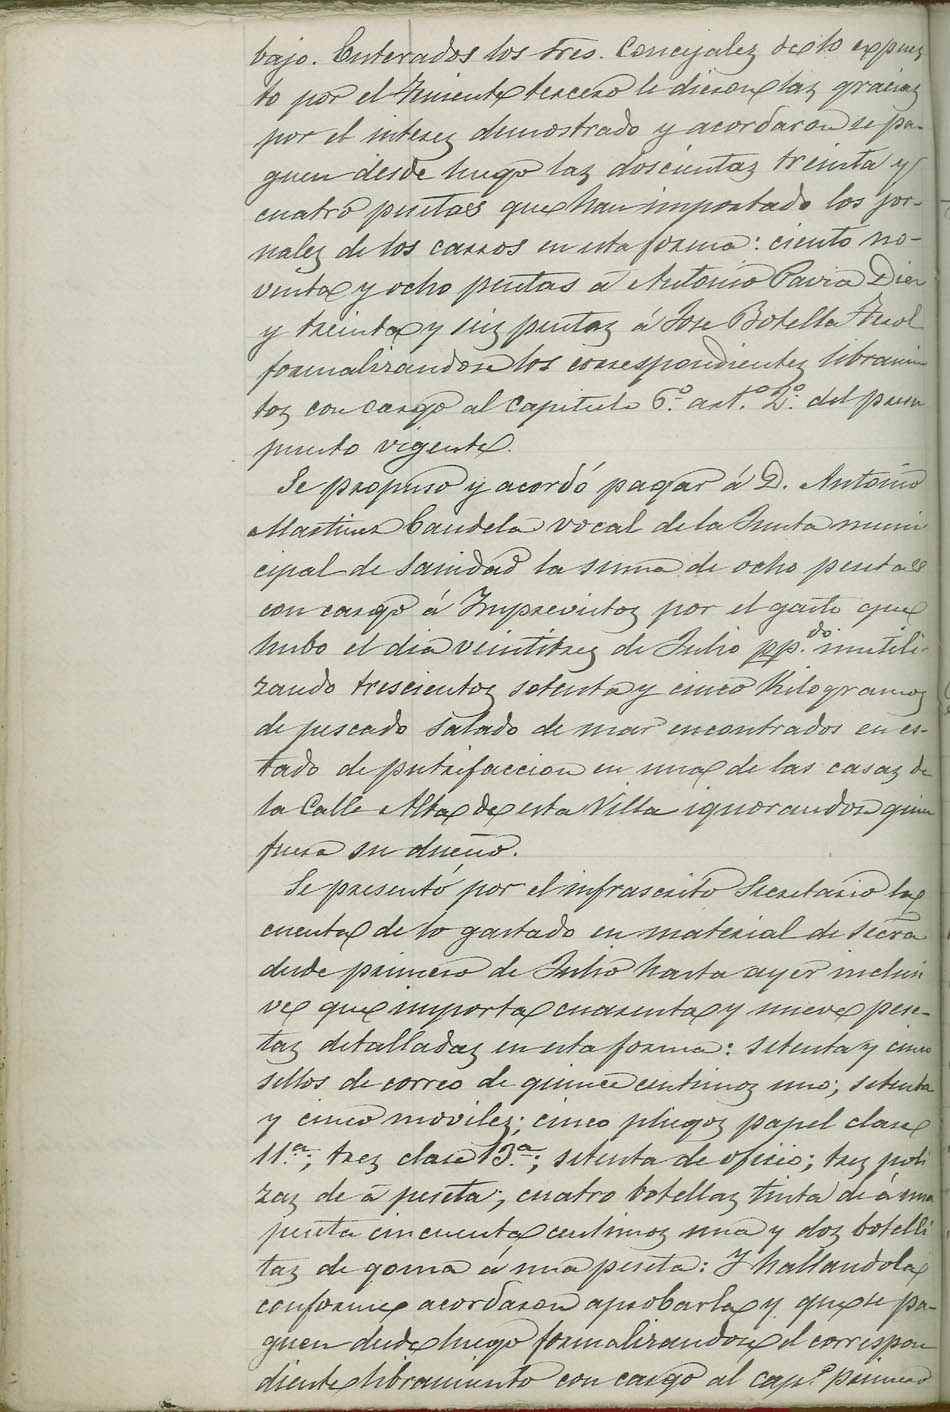 bajo. Enterados los Sres. Concejales de lo expues
to por el Teniente tercero le dieron las gracias
por el interes demostrado y acordaron se pa-
guen desde luego las doscientas treinta y
cuatro pesetas que han importado los jor-
nales de los carros en esta forma: ciento no-
venta y ocho pesetas á Antonio Pavia Diez
y treinta y seis pesetas á Jose Botella Terol
formalizandose los correspondientes libramien
tos con cargo al Capitulo 6.º art.º 2.º del presu
puesto vigente.
Se propuso y acordó pagar á D. Antonio
Martinez Candela vocal de la Junta muni
cipal de Sanidad la suma de ocho pesetas
con cargo á Imprevistos por el gasto que
hubo el dia veintitres de Julio pp.do inutili-
zando trescientos setenta y cinco Kilogramos
de pescado salado de mar encontrados en es-
tado de putrifaccion en una de las casas de
la Calle Alta de esta Villa ignorandose quien
fuera su dueño.
Se presentó por el infrascrito Secretario la
cuenta de lo gastado en material de Secra
desde primero de Julio hasta ayer inclusi
ve que importa cuarenta y nueve pese-
tas detalladas en esta forma: setenta y cinco
sellos de correo de quince centimos uno; setenta
y cinco moviles; cinco pliegos papel clase
11.ª; tres clase 13.ª; setenta de oficio; tres poli
zas de á peseta; cuatro botellas tinta de á una
peseta cincuenta centimos una y dos botelli
tas de goma á una peseta: Y hallandola
conforme acordaron aprobarla y que se pa-
guen desde luego formalizandose el correspon
diente libramiento con cargo al cap.º primero